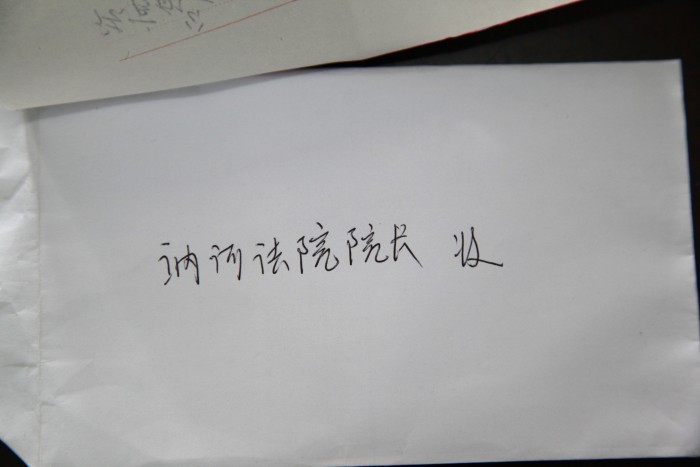 讷河法院院长 收